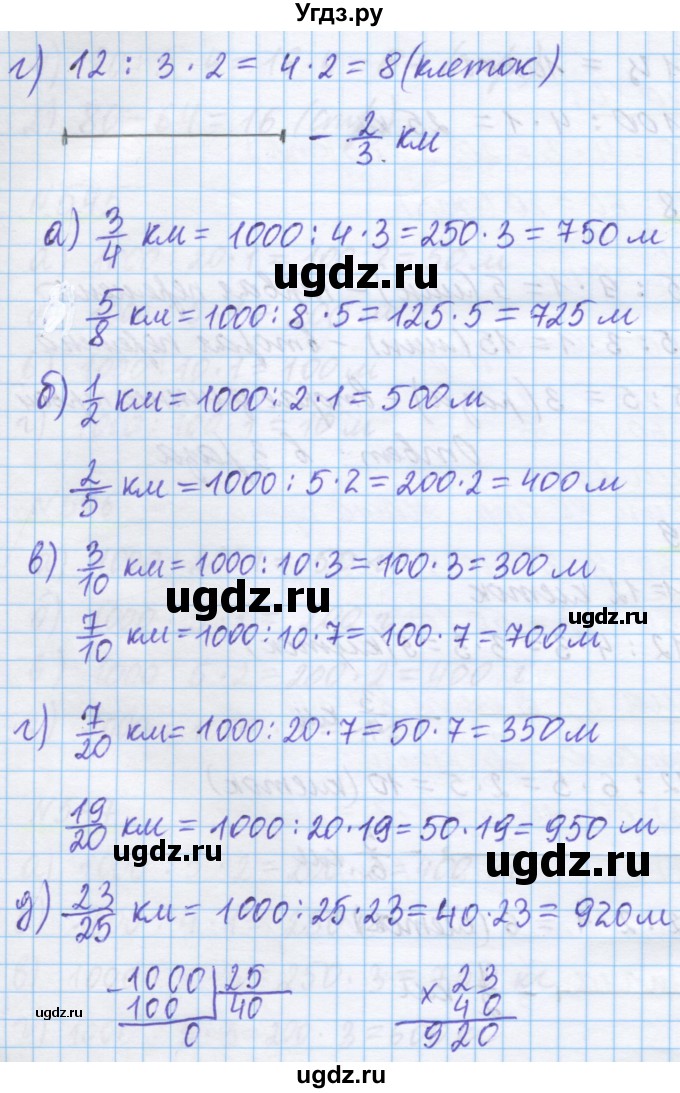 Угдз.ру
г) 12 : 3 · 2 = 4 · 2 = 8 (клеток)
- 2/3 км
а) 3/4 км = 1000 : 4 · 3 = 250 · 3 = 750 м
ugdz.ru
5/8 км = 1000 : 8 · 5 = 125 · 5 = 725 м
б) 1/2 км = 1000 : 2 · 1 = 500 м
2/5 км = 1000 : 5 · 2 = 200 · 2 = 400 м
в) 3/10 км = 1000 : 10 · 3 = 100 · 3 = 300 м
ugdz.ru
ugdz.ru
7/10 км = 1000 : 10 · 7 = 100 · 7 = 700 м
г) 7/20 км = 1000 : 20 · 7 = 50 · 7 = 350 м
19/20 км = 1000 : 20 · 19 = 50 · 19 = 950 м
ugdz.ru
ugdz.ru
д) 23/25 км = 1000 : 25 · 23 = 40 · 23 = 920 м
- 1000 | 25
100 | 40
0
× 23
40
920
ugdz.ru
ugdz.ru